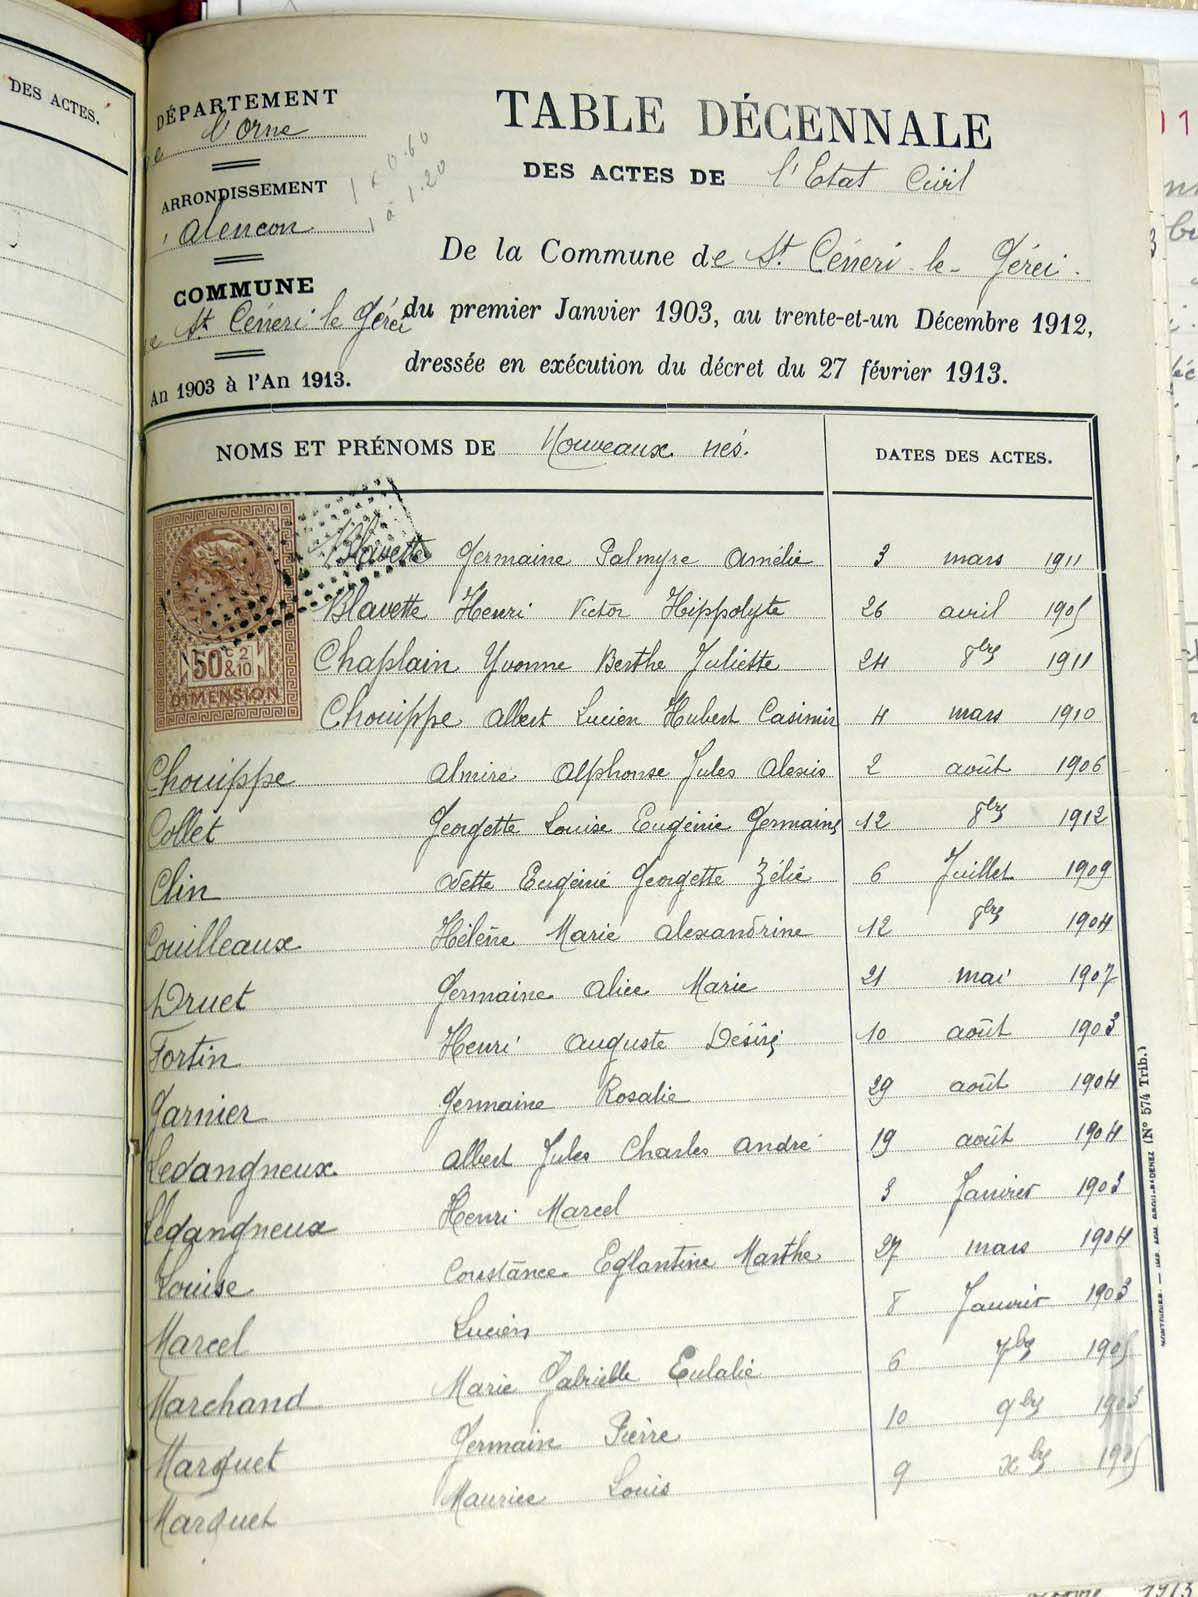 DES ACTES.
DÉPARTEMENT
de l'Orne
ARRONDISSEMENT
d'Alencon
COMMUNE
de St Céneri le Gérei
An 1903 à l'An 1913.
1 x 0.60
1 à 1.20
TABLE DÉCENNALE
DES ACTES DE l'Etat Civil
De la Commune de St. Céneri-le-Gérei.
du premier Janvier 1903, au trente-et-un Décembre 1912,
dressée en exécution du décret du 27 février 1913.
NOMS ET PRÉNOMS DE Nouveaux nés. DATES DES ACTES.
50c 2 &10
DIMENSION
Blavette Germaine Palmyre Amélie 3 mars 1911
Blavette Henri Victor Hippolyte 26 avril 1905
Chaplain Yvonne Berthe Juliette 24 8bre 1911
Chouippe Albert Lucien Hubert Casimir 4 mars 1910
Chouippe Almire Alphonse Jules Alexis 2 août 1906
Collet Georgette Louise Eugénie Germaine 12 8bre 1912
Clin Odette Eugénie Georgette Zélie 6 Juillet 1909
Couilleaux Hélène Marie Alexandrine 12 8bre 1904
Druet Germaine Alice Marie 21 mai 1907
Fortin Henri Auguste Désiré 10 août 1903
Garnier Germaine Rosalie 29 août 1904
Ledangneux Albert Jules Charles André 19 août 1904
Ledangneux Henri Marcel 3 Janvier 1903
Louise Constance Eglantine Marthe 27 mars 1904
Marcel Lucien 8 Janvier 1903
Marchand Marie Gabrielle Eulalie 6 7bre 1905
Marquet Germain Pierre 10 9bre 1903
Marquet Maurice Louis 9 xbre 1905
(No 574 Trib.)
1913